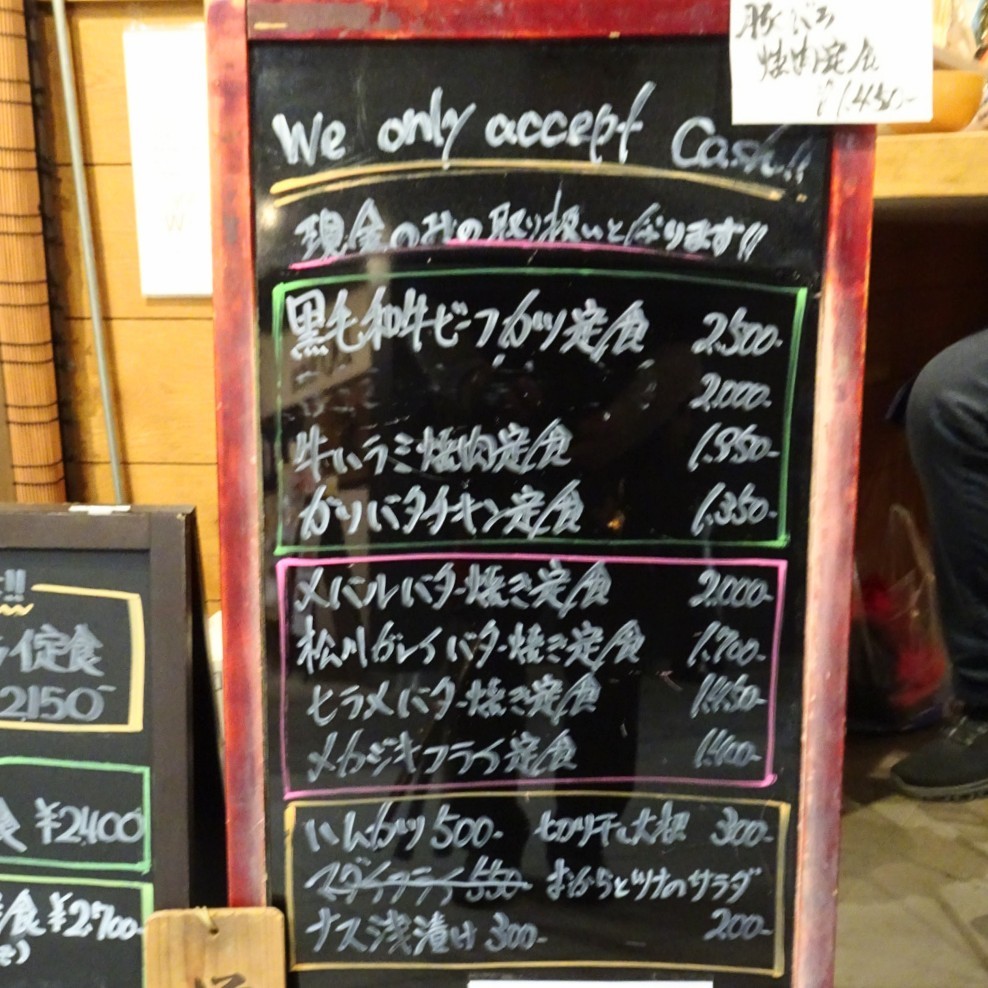 豚どろ
焼肉定食
¥1,450-
We only accept Cash!!
現金のみの取り扱いとなります!!
黒毛和牛ビーフカツ定食 2,500-
2,000-
牛ハラミ焼肉定食 1,550-
ガリバタチキン定食 1,350-
メバルバター焼き定食 2,000-
松川ガレイバター焼き定食 1,700-
ヒラメバター焼き定食 1,450-
メカジキフライ定食 1,400-
ハムカツ 500- 切り干し大根 300-
550- おからとツナのサラダ
ナス浅漬け 300- 200-
!!
イ定食
2150-
食 ¥2400
食 ¥2,700-